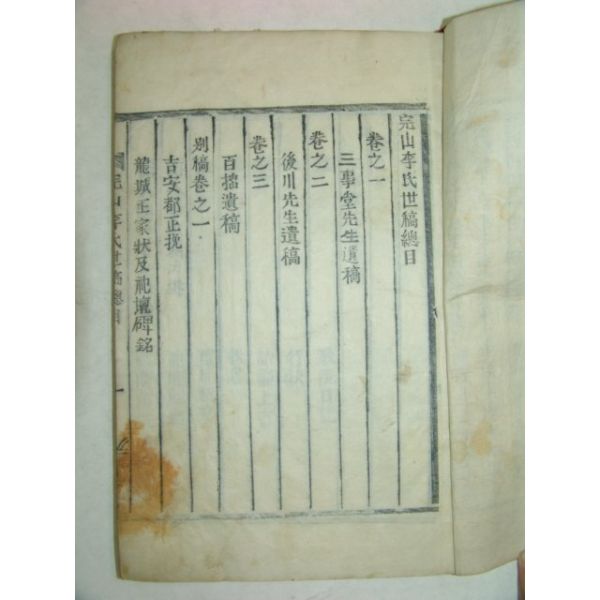 完山李氏世稿總目
卷之一
三事堂先生遺稿
卷之二
後川先生遺稿
卷之三
百拙遺稿
別稿卷之一
吉安都正挽
龍城王家狀及祀壇碑銘
完山李氏世稿總目
一